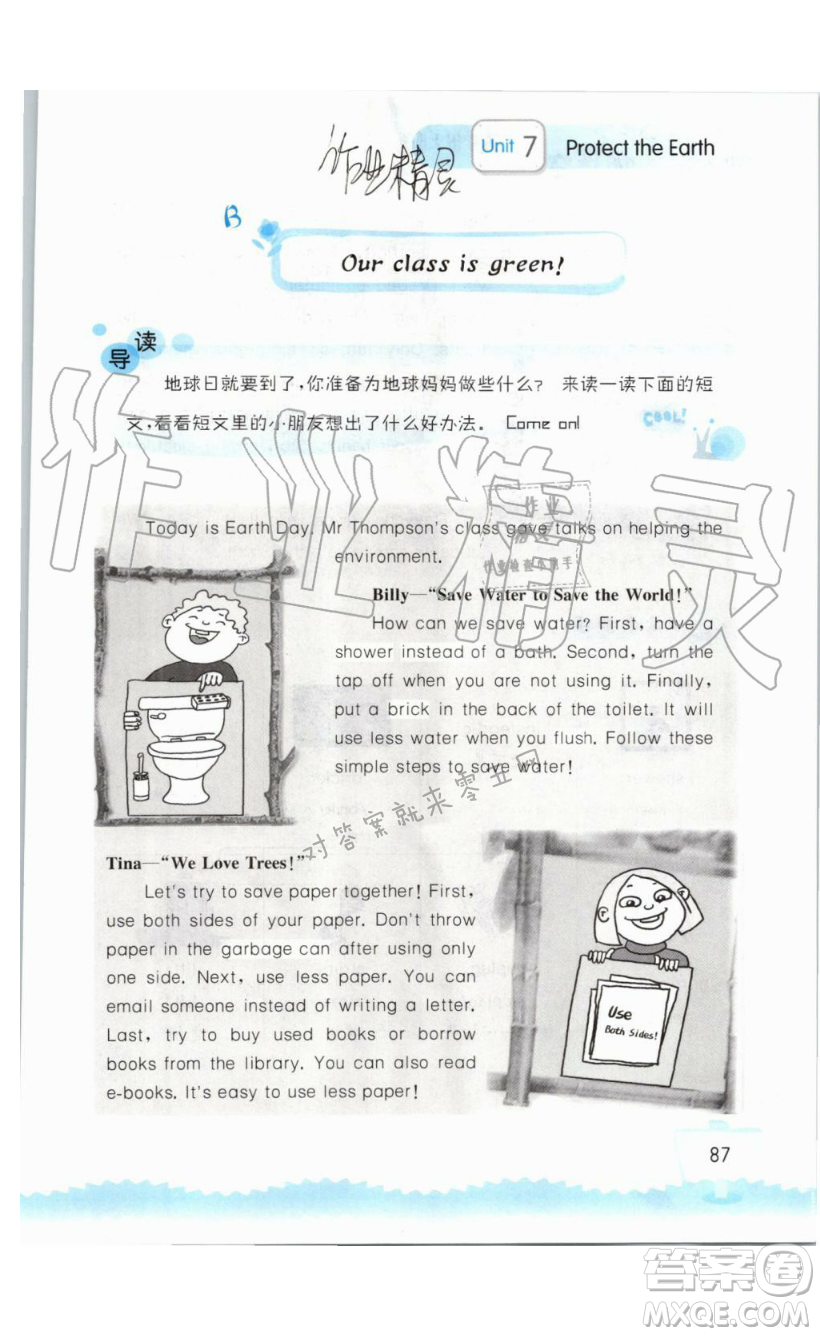 Unit 7 Protect the Earth
作业精灵
B
Our class is green!
导读
地球日就要到了，你准备为地球妈妈做些什么？ 来读一读下面的短
文，看看短文里的小朋友想出了什么好办法。 Come on!
COOL!
Today is Earth Day. Mr Thompson's class gave talks on helping the
environment.
Billy—“Save Water to Save the World!”
How can we save water? First, have a
shower instead of a bath. Second, turn the
tap off when you are not using it. Finally,
put a brick in the back of the toilet. It will
use less water when you flush. Follow these
simple steps to save water!
Tina—“We Love Trees!”
Let's try to save paper together! First,
use both sides of your paper. Don't throw
paper in the garbage can after using only
one side. Next, use less paper. You can
email someone instead of writing a letter.
Last, try to buy used books or borrow
books from the library. You can also read
e-books. It's easy to use less paper!
Use
Both Sides!
87
作业精灵
作业
精灵
对答案就来零五网
答案圈
MXQE.COM